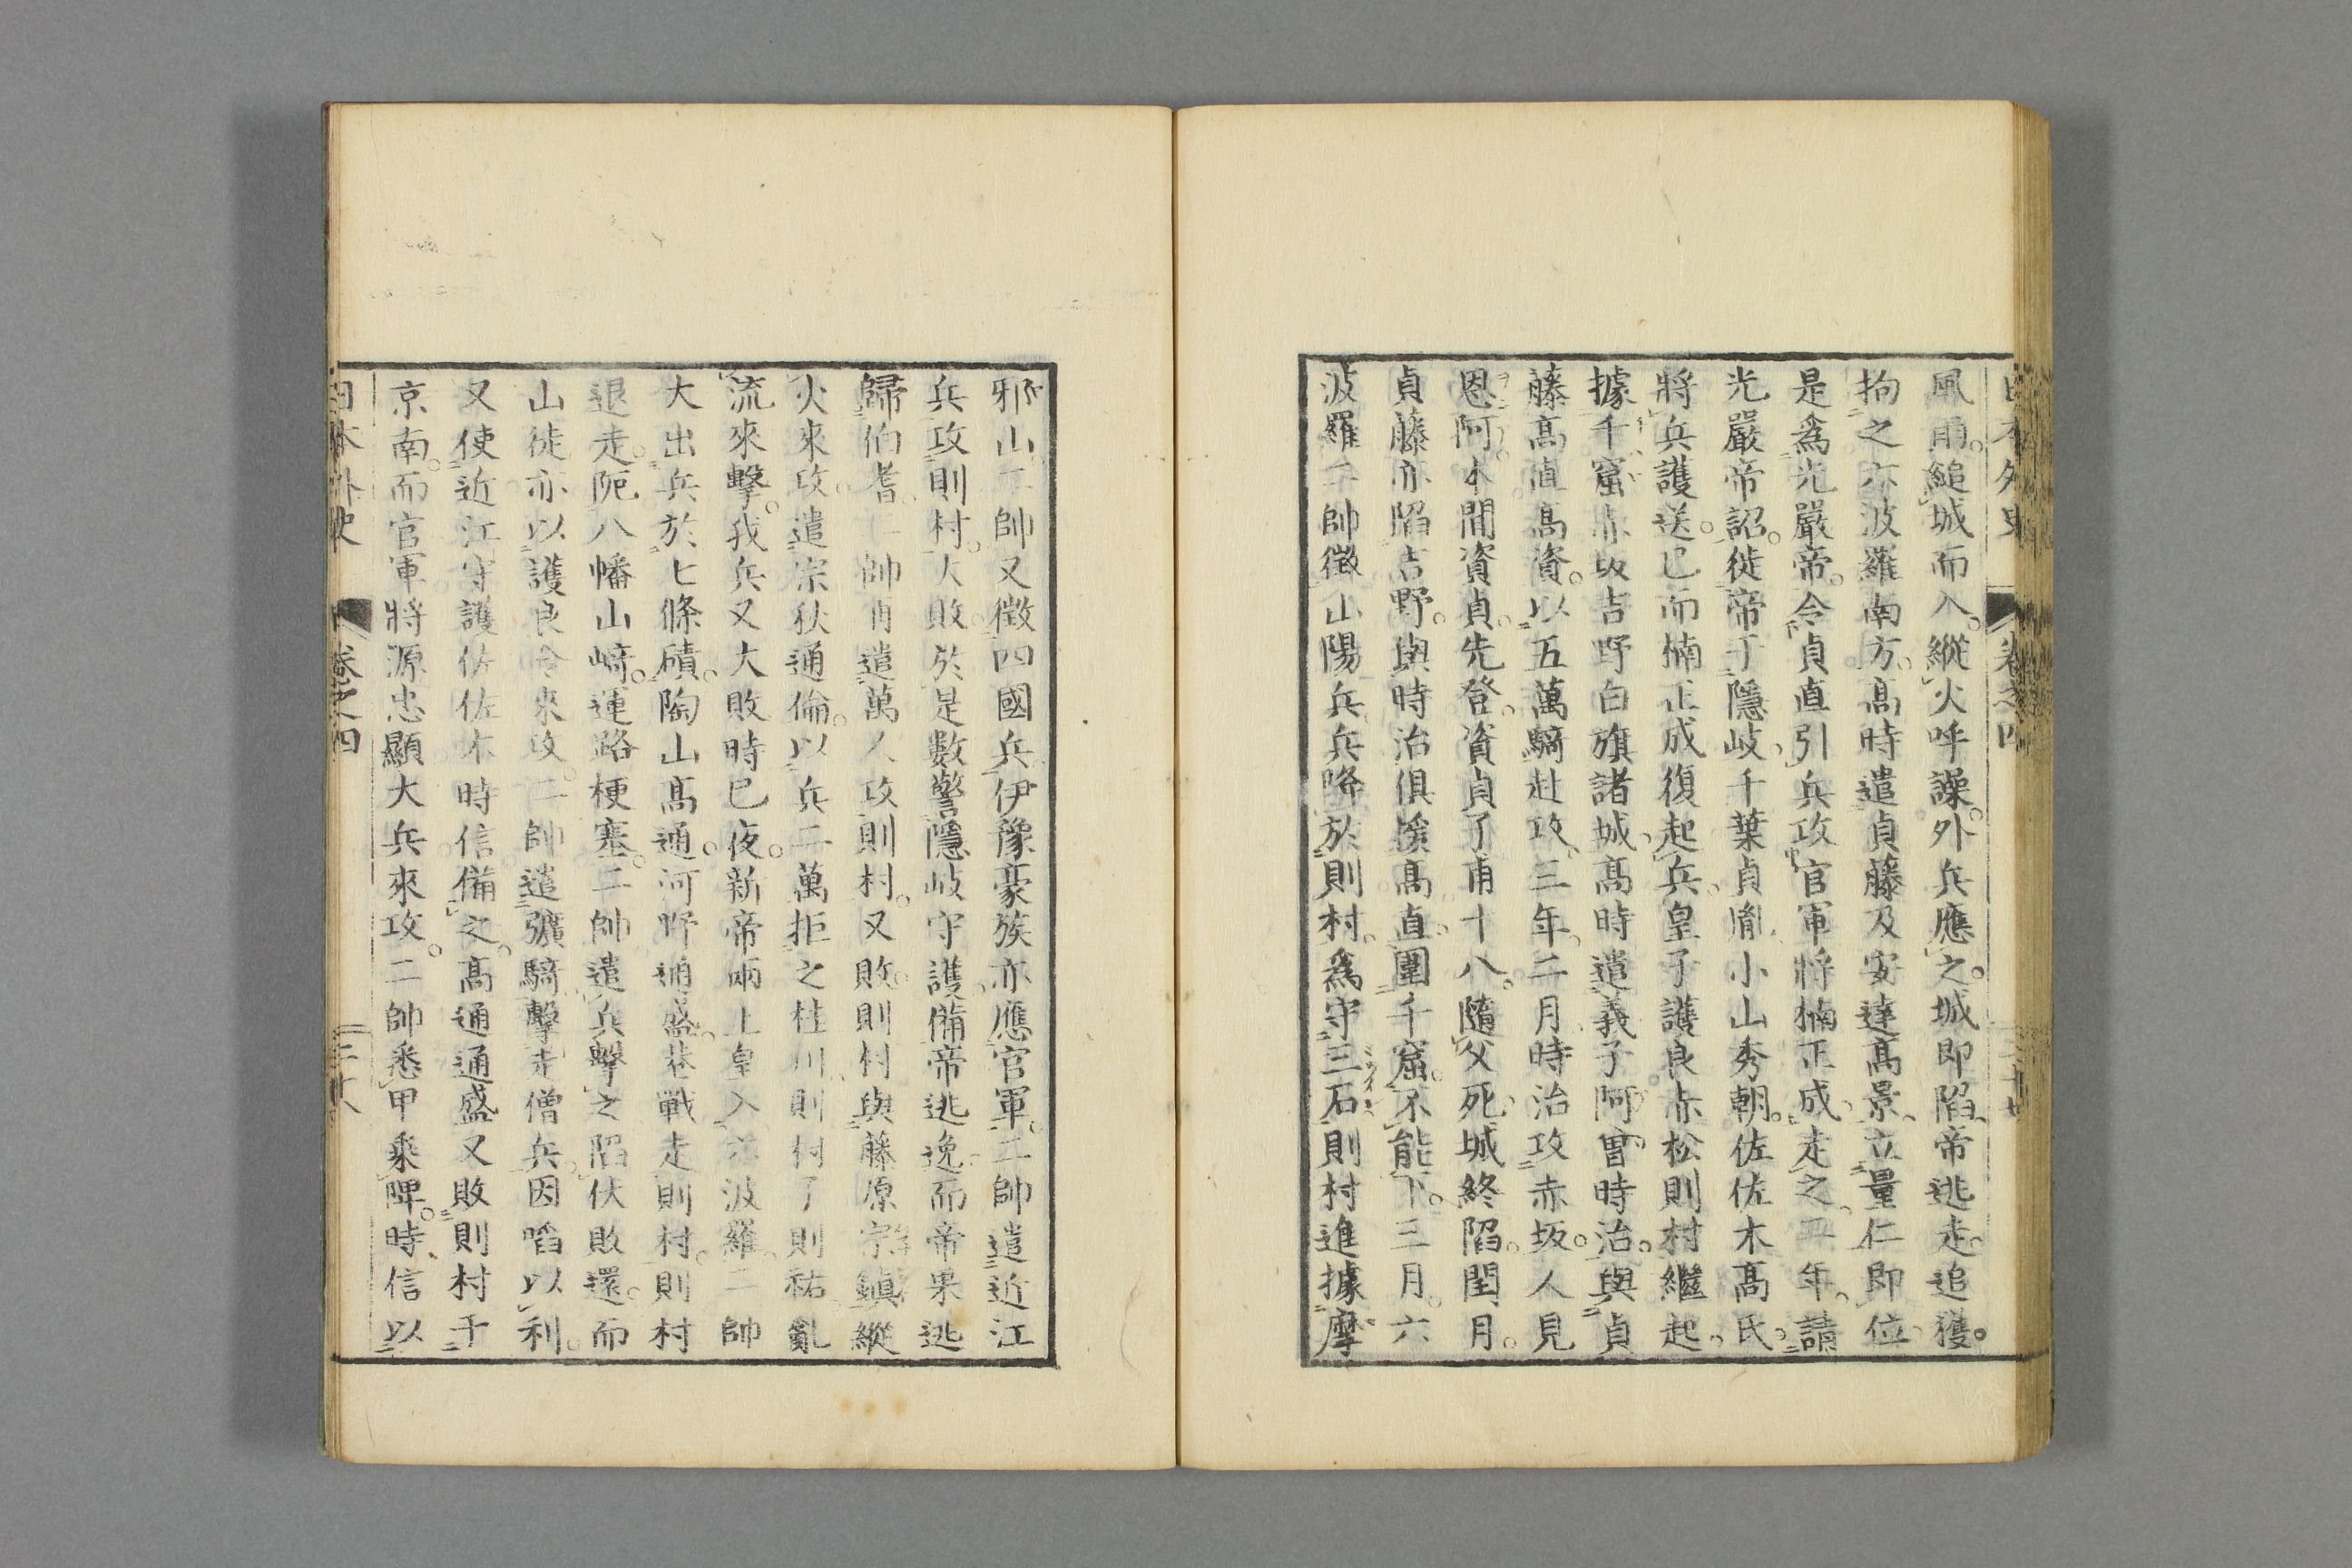 日本外史 卷之四
風雨。縋城而入。縱火呼譟。外兵應之。城即陷。帝逃走。追獲。
拘之六波羅南方。高時遣貞藤及安達高景。立量仁即位。
是爲光嚴帝。令貞直引兵攻官軍將楠正成。走之。二年。請
光嚴帝詔。徙帝于隱岐。千葉貞胤。小山秀朝。佐佐木高氏。
將兵護送。已而楠正成復起兵。皇子護良。赤松則村繼起。
據千窟赤坂吉野白旗諸城。高時遣義子阿曾時治。與貞
藤高直高資。以五萬騎赴攻。三年。二月。時治攻赤坂。人見
恩阿。本間資貞。先登。資貞子甫十八。隨父死。城終陷。閏月。
貞藤亦陷吉野。與時治俱援高直。圍千窟。不能下。三月。六
波羅二帥徵山陽兵。兵降於則村。爲守三石。則村進據摩
邪山。二帥又徵四國兵。伊豫豪族亦應官軍。二帥遣近江
兵攻則村。大敗。於是數警隱岐守護。備帝逃逸。而帝果逃
歸伯耆。二帥再遣萬人攻則村。又敗。則村與藤原宗鎮縱
火來攻。遣宗秋通倫。以兵二萬拒之桂川。則村子則祐亂
流來擊。我兵又大敗。時已夜。新帝兩上皇入六波羅。二帥
大出兵於七條磧。陶山高通。河野通盛。巷戰走則村。則村
退走。阨八幡山崎。運路梗塞。二帥遣兵擊之。陷伏敗還。而
山徒亦以護良令來攻。二帥遣彍騎擊走僧兵。因啗以利。
又使近江守護佐佐木時信備之。高通通盛又敗則村于
京南。而官軍將源忠顯大兵來攻。二帥悉甲乘陴。時信以
日本外史 卷之四